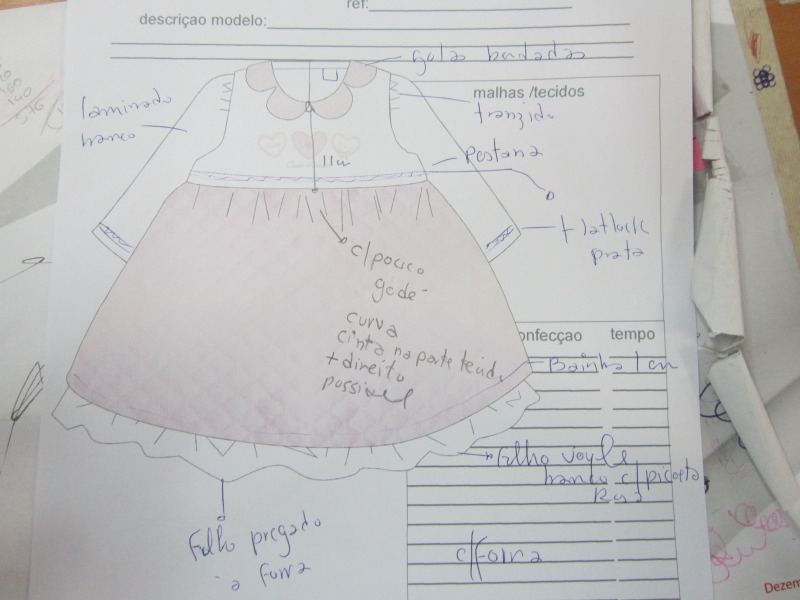 ref:
descriçao modelo:
golas bordadas
malhas /tecidos
franzido
laminado
branco
11cm
Pestana
+ flatlock
prata
c/pouco
godé
curva
cinta na parte tecido
+ direito
possivel
onfecçao tempo
Bainha 1 cm
Folho voyle
branco c/ picoeta
Folho pregado
à forra
c/Forra
Dezem